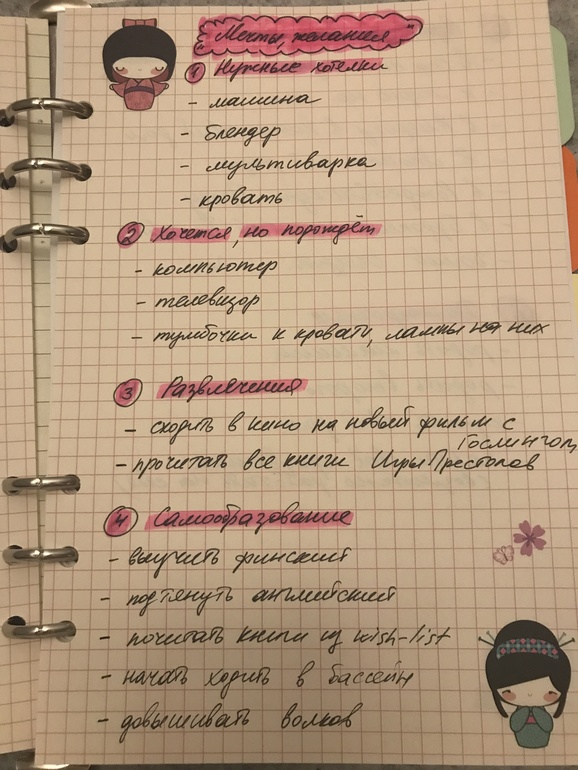 "Мечты, желания"
1 Нужные хотелки
- машина
- блендер
- мультиварка
- кровать
2 Хочется, но подождёт
- компьютер
- телевизор
- тумбочки к кровати, лампы на них
3 Развлечения
- сходить в кино на новый фильм с
Гослингом
- прочитать все книги Игры Престолов
4 Самообразование
- выучить финский
- подтянуть английский
- почитать книги из wish-list
- начать ходить в бассейн
- довышивать волков